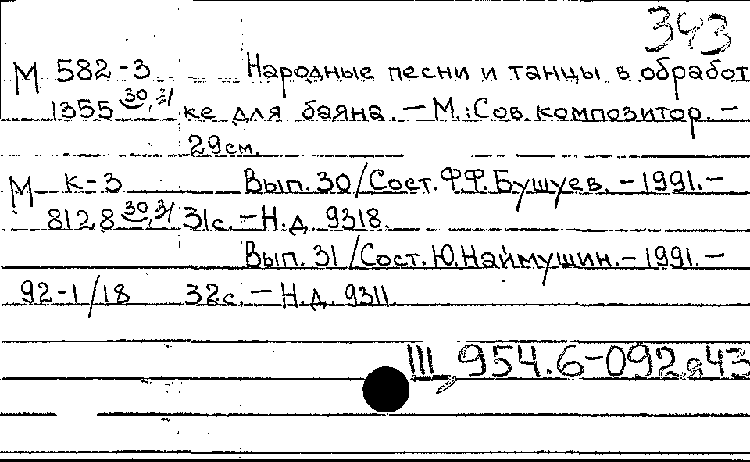 343
М 582-3 Народные песни и танцы в обработ
1355 30,31 ке для баяна. – М.: Сов. композитор. –
29см.
М К-3 Вып. 30/Сост. Ф.Ф. Бушуев. – 1991. –
8128 30,31 31с. – Н.д. 9318.
Вып. 31/Сост. Ю. Наймушин. – 1991. –
92-1/18 32с. – Н.д. 9311.
III, 954.6-092я43